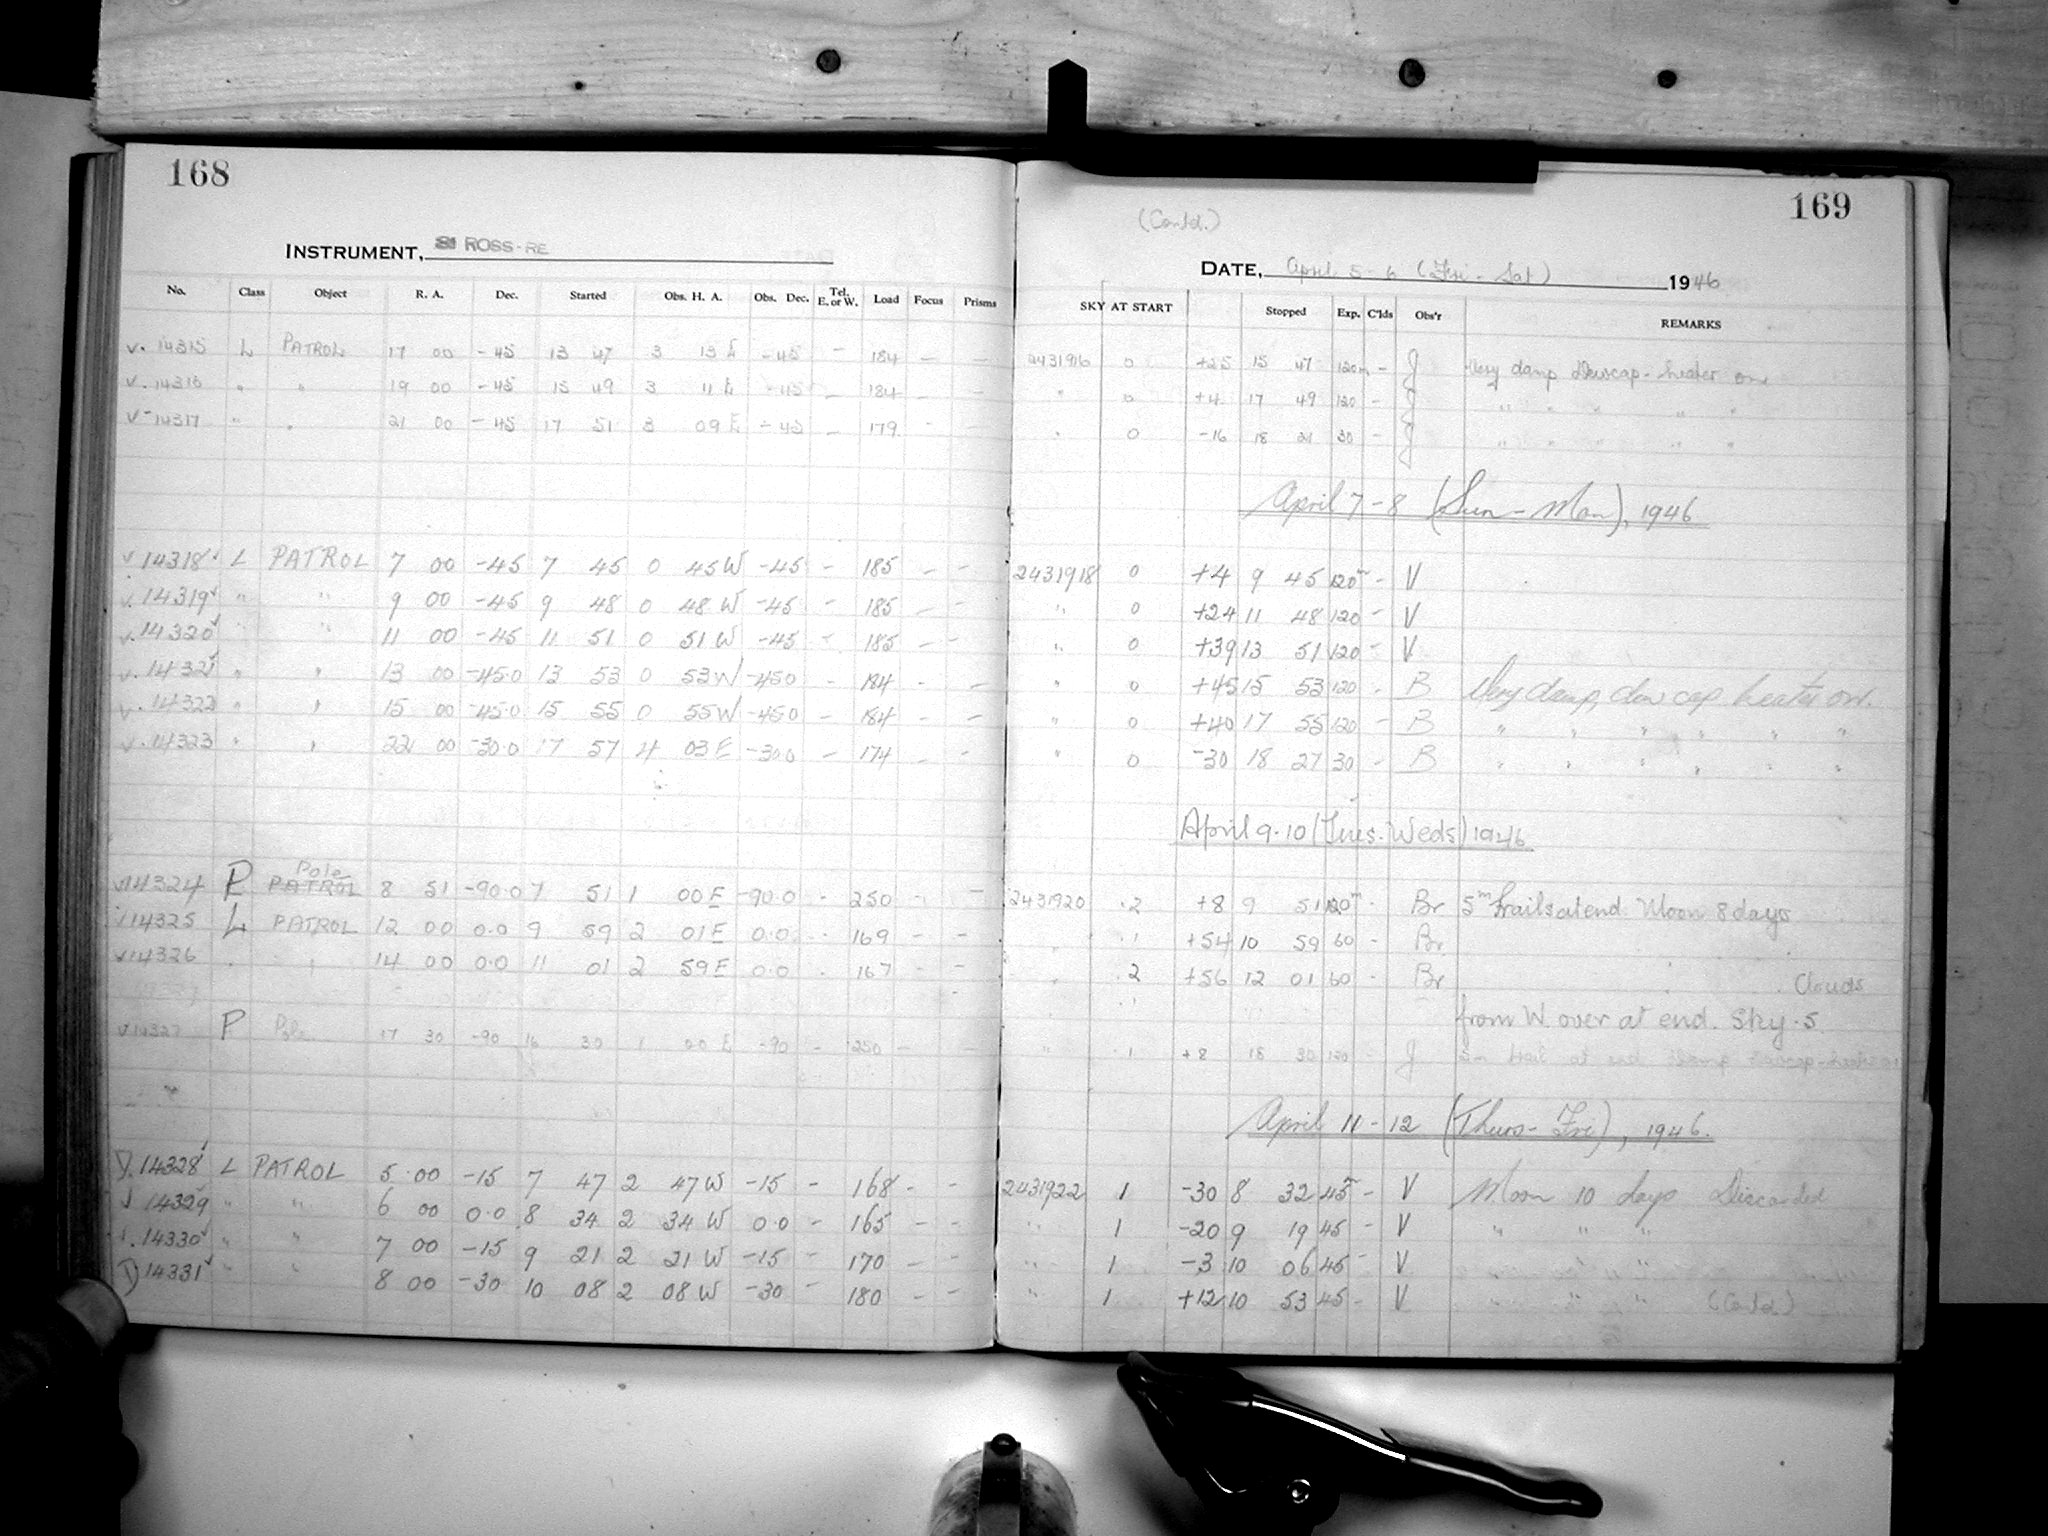 168
INSTRUMENT, ROSS-RE
No. Class Object R. A. Dec. Started Obs. H. A. Obs. Dec. Tel. E. or W. Load Focus Prisms
v. 14315 L PATROL 17 00 -45 13 47 3 13 E -45 - 184 - -
v. 14316 " " 19 00 -45 15 49 3 11 E -45 - 184 - -
v 14317 " " 21 00 -45 17 51 3 09 E -45 - 179 - -
v 14318 L PATROL 7 00 -45 7 45 0 45 W -45 - 185 - -
v. 14319 " " 9 00 -45 9 48 0 48 W -45 - 185 - -
v. 14320 " " 11 00 -45 11 51 0 51 W -45 - 185 - -
v. 14321 " " 13 00 -45.0 13 53 0 53 W -45.0 - 184 - -
v. 14322 " " 15 00 -45.0 15 55 0 55 W -45.0 - 184 - -
v. 14323 " " 22 00 -30.0 17 57 4 03 E -30.0 - 174 - -
v 14324 P Pole PATROL 8 51 -90.0 7 51 1 00 E -90.0 - 250 - -
v 14325 L PATROL 12 00 0.0 9 59 2 01 E 0.0 - 169 - -
v 14326 " " 14 00 0.0 11 01 2 59 E 0.0 - 167 - -
v 14327 P Pole 17 30 -90 16 30 1 00 E -90 - 250 - -
14328 L PATROL 5 00 -15 7 47 2 47 W -15 - 168 - -
14329 " " 6 00 0.0 8 34 2 34 W 0.0 - 165 - -
14330 " " 7 00 -15 9 21 2 21 W -15 - 170 - -
14331 " " 8 00 -30 10 08 2 08 W -30 - 180 - -
169
(Contd.)
DATE, April 5-6 (Fri - Sat) 1946
SKY AT START Stopped Exp. C'lds Obs'r REMARKS
2431916 0 +25 15 47 120m - J Very damp Dewcap-heater on
" 0 +4 17 49 120 - J " " " " "
" 0 -16 18 21 30 - J " " " " "
April 7-8 (Sun-Mon), 1946
2431918 0 +4 9 45 120m - V
" 0 +24 11 48 120 - V
" 0 +39 13 51 120 - V
" 0 +45 15 53 120 - B Very damp, dew cap heater on.
" 0 +40 17 55 120 - B " " " " " "
" 0 -30 18 27 30 - B " " " " " "
April 9-10 (Tues-Weds) 1946
2431920 2 +8 9 51 120m - Br 5m trails at end Moon 8 days
" 1 +54 10 59 60 - Br
" 2 +56 12 01 60 - Br " " Clouds
from W. over at end. Sky .5
" 1 +8 18 30 120 - J 5m trail at end Damp Dewcap-heater on
April 11-12 (Thurs-Fri), 1946.
2431922 1 -30 8 32 45m - V Moon 10 days Discarded
" 1 -20 9 19 45 - V " " "
" 1 -3 10 06 45 - V " " "
" 1 +12 10 53 45 - V " " " (Contd)